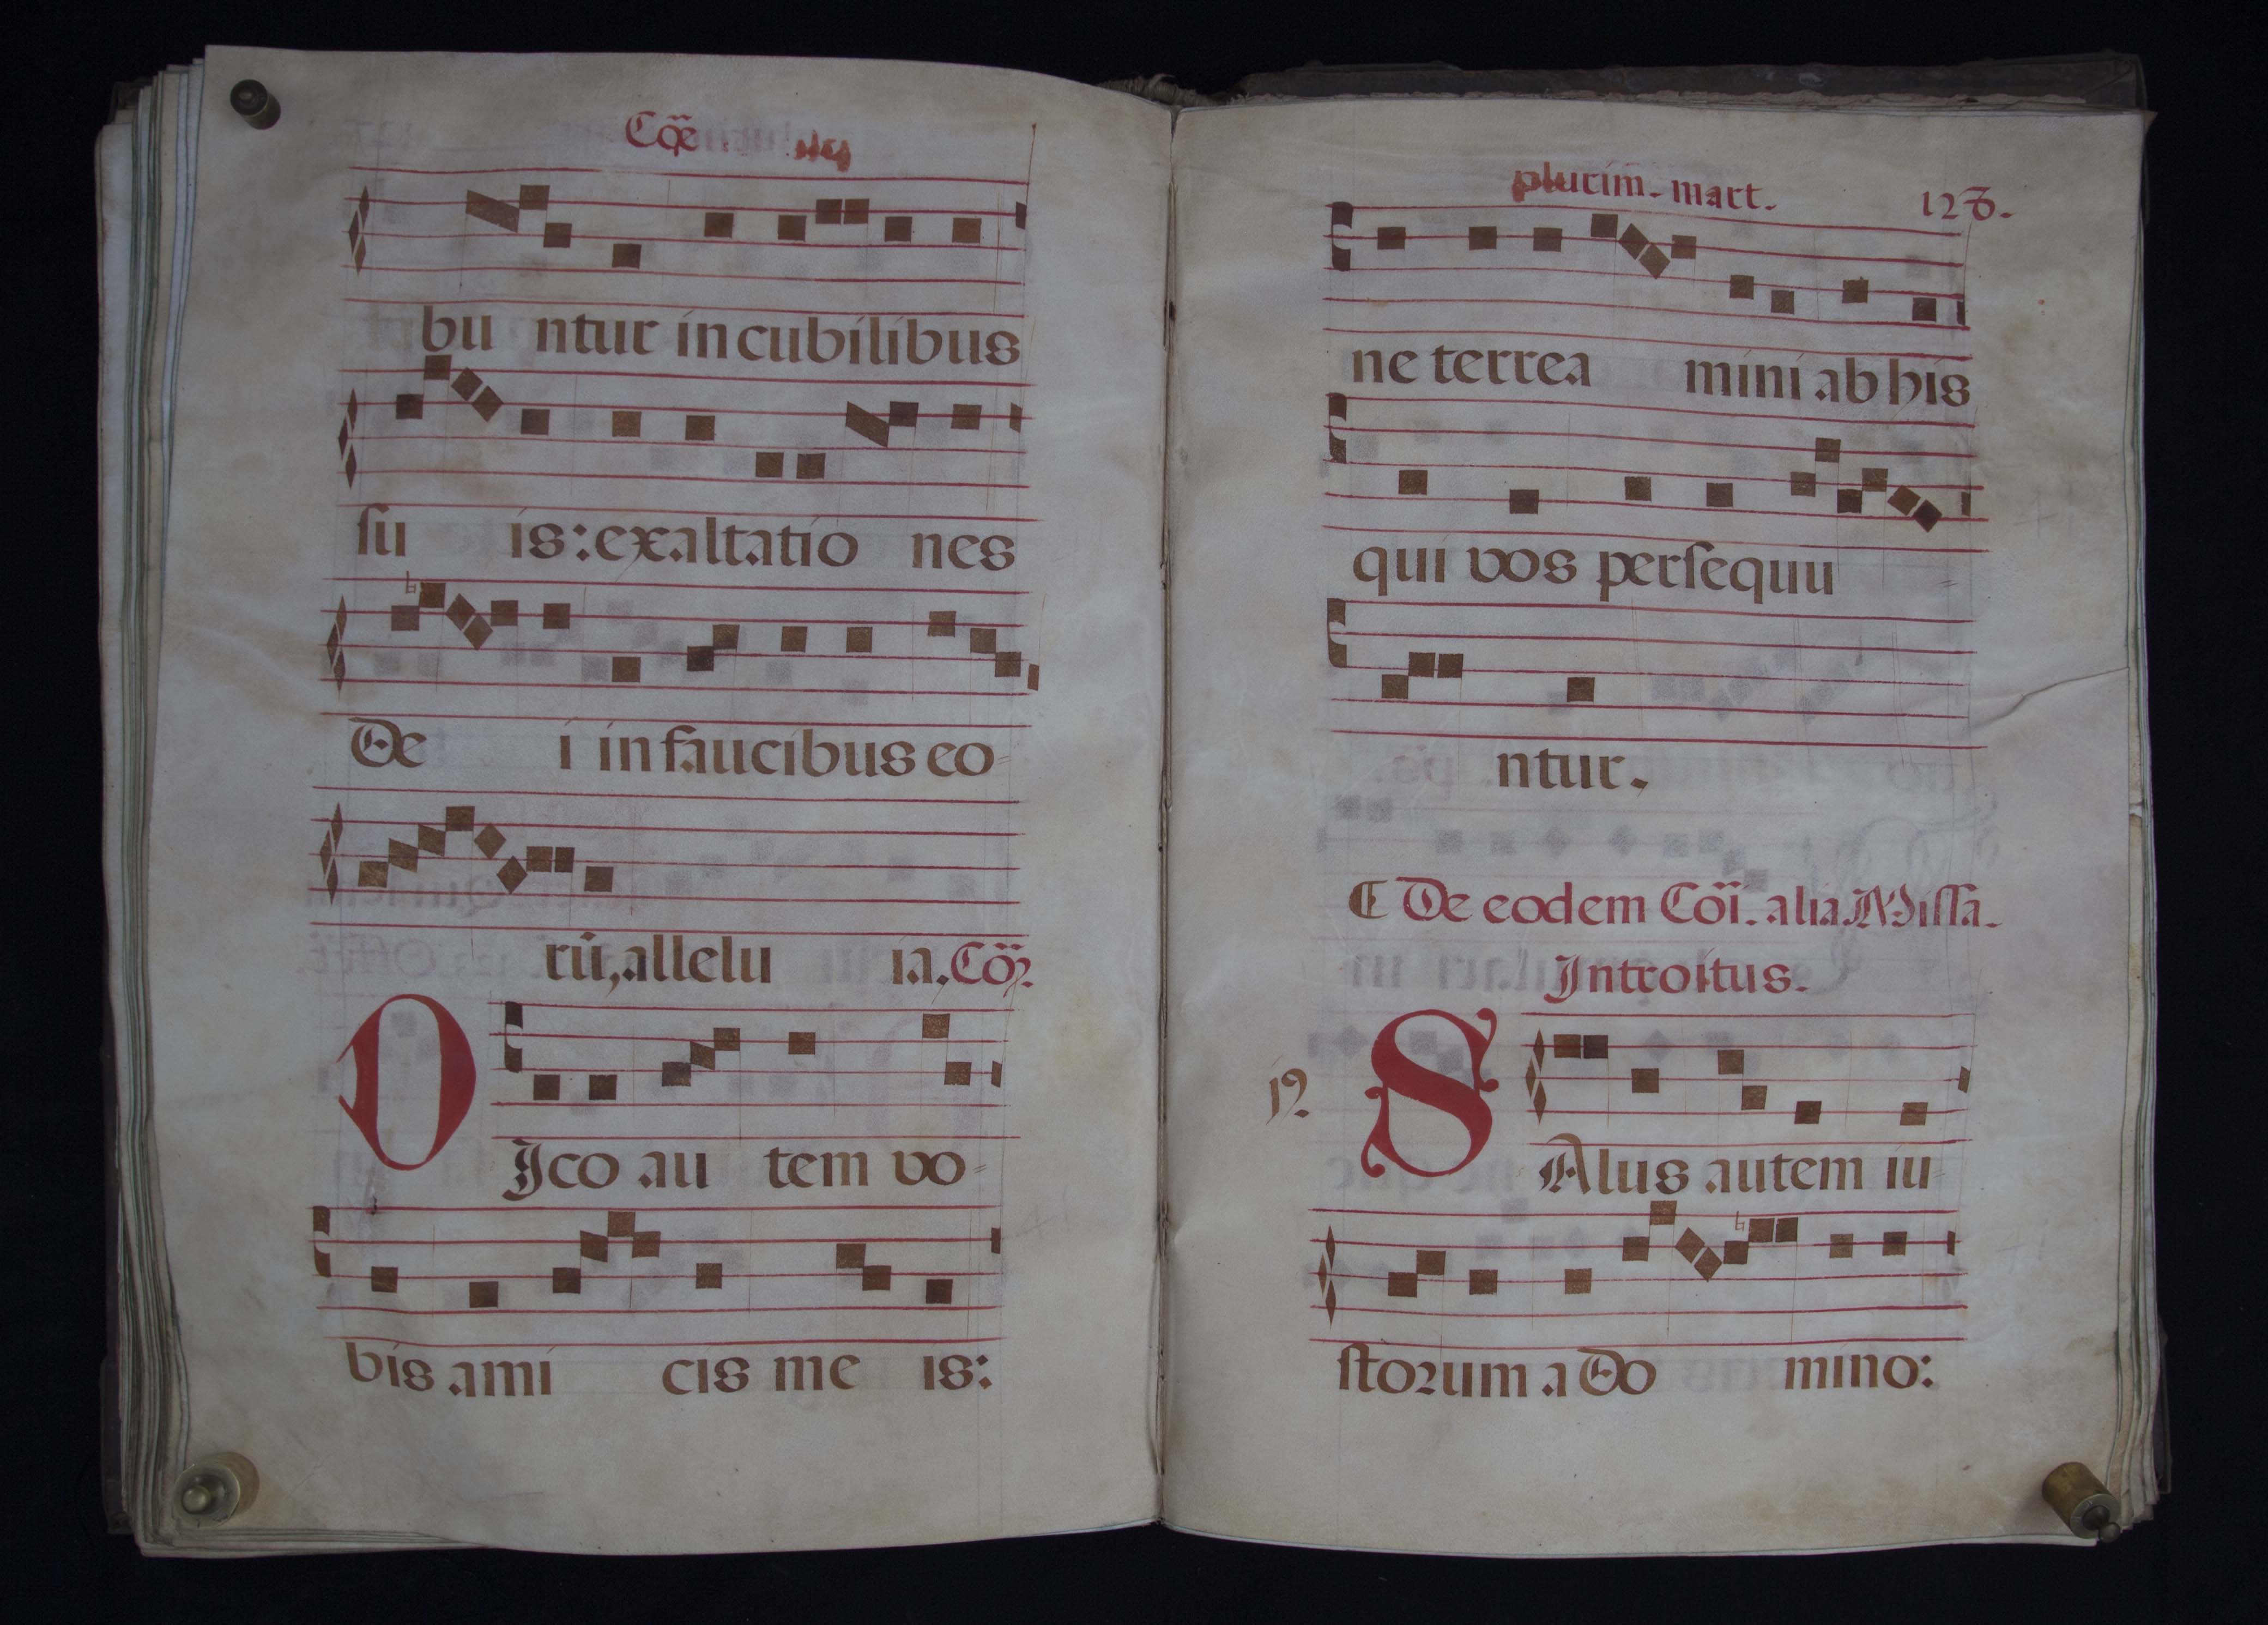 Cõe
bu ntur in cubilibus
ſu is: exaltatio nes
De i in faucibus eo-
rũ, allelu ia. Cõ.
D Ico au tem vo-
bis ami cis me is:
plurim̃. mart. 128.
ne terrea mini ab his
qui vos perſequu-
ntur.
De eodem Cõi. alia Miſſa.
Introitus.
S Alus autem iu-
ſtorum a Do mino: